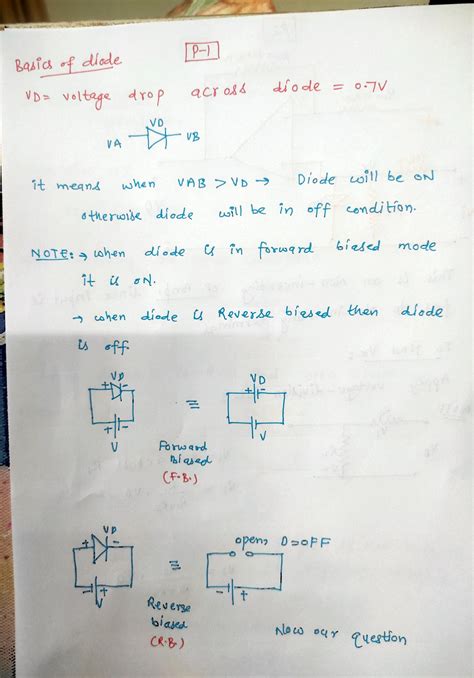 Basics of diode P-1
VD = voltage drop across diode = 0.7V
VD
VA VB
it means when VAB > VD → Diode will be ON
otherwise diode will be in off condition.
NOTE: → when diode is in forward biased mode
it is ON.
→ when diode is Reverse biesed then diode
is off.
VD VD
+ - ≡ + -
+ - V V
Forward
Biased
(F.B.)
VD
+ - ≡ open, D=OFF
- + V - +
Reverse
biased
(R.B.)
Now our question